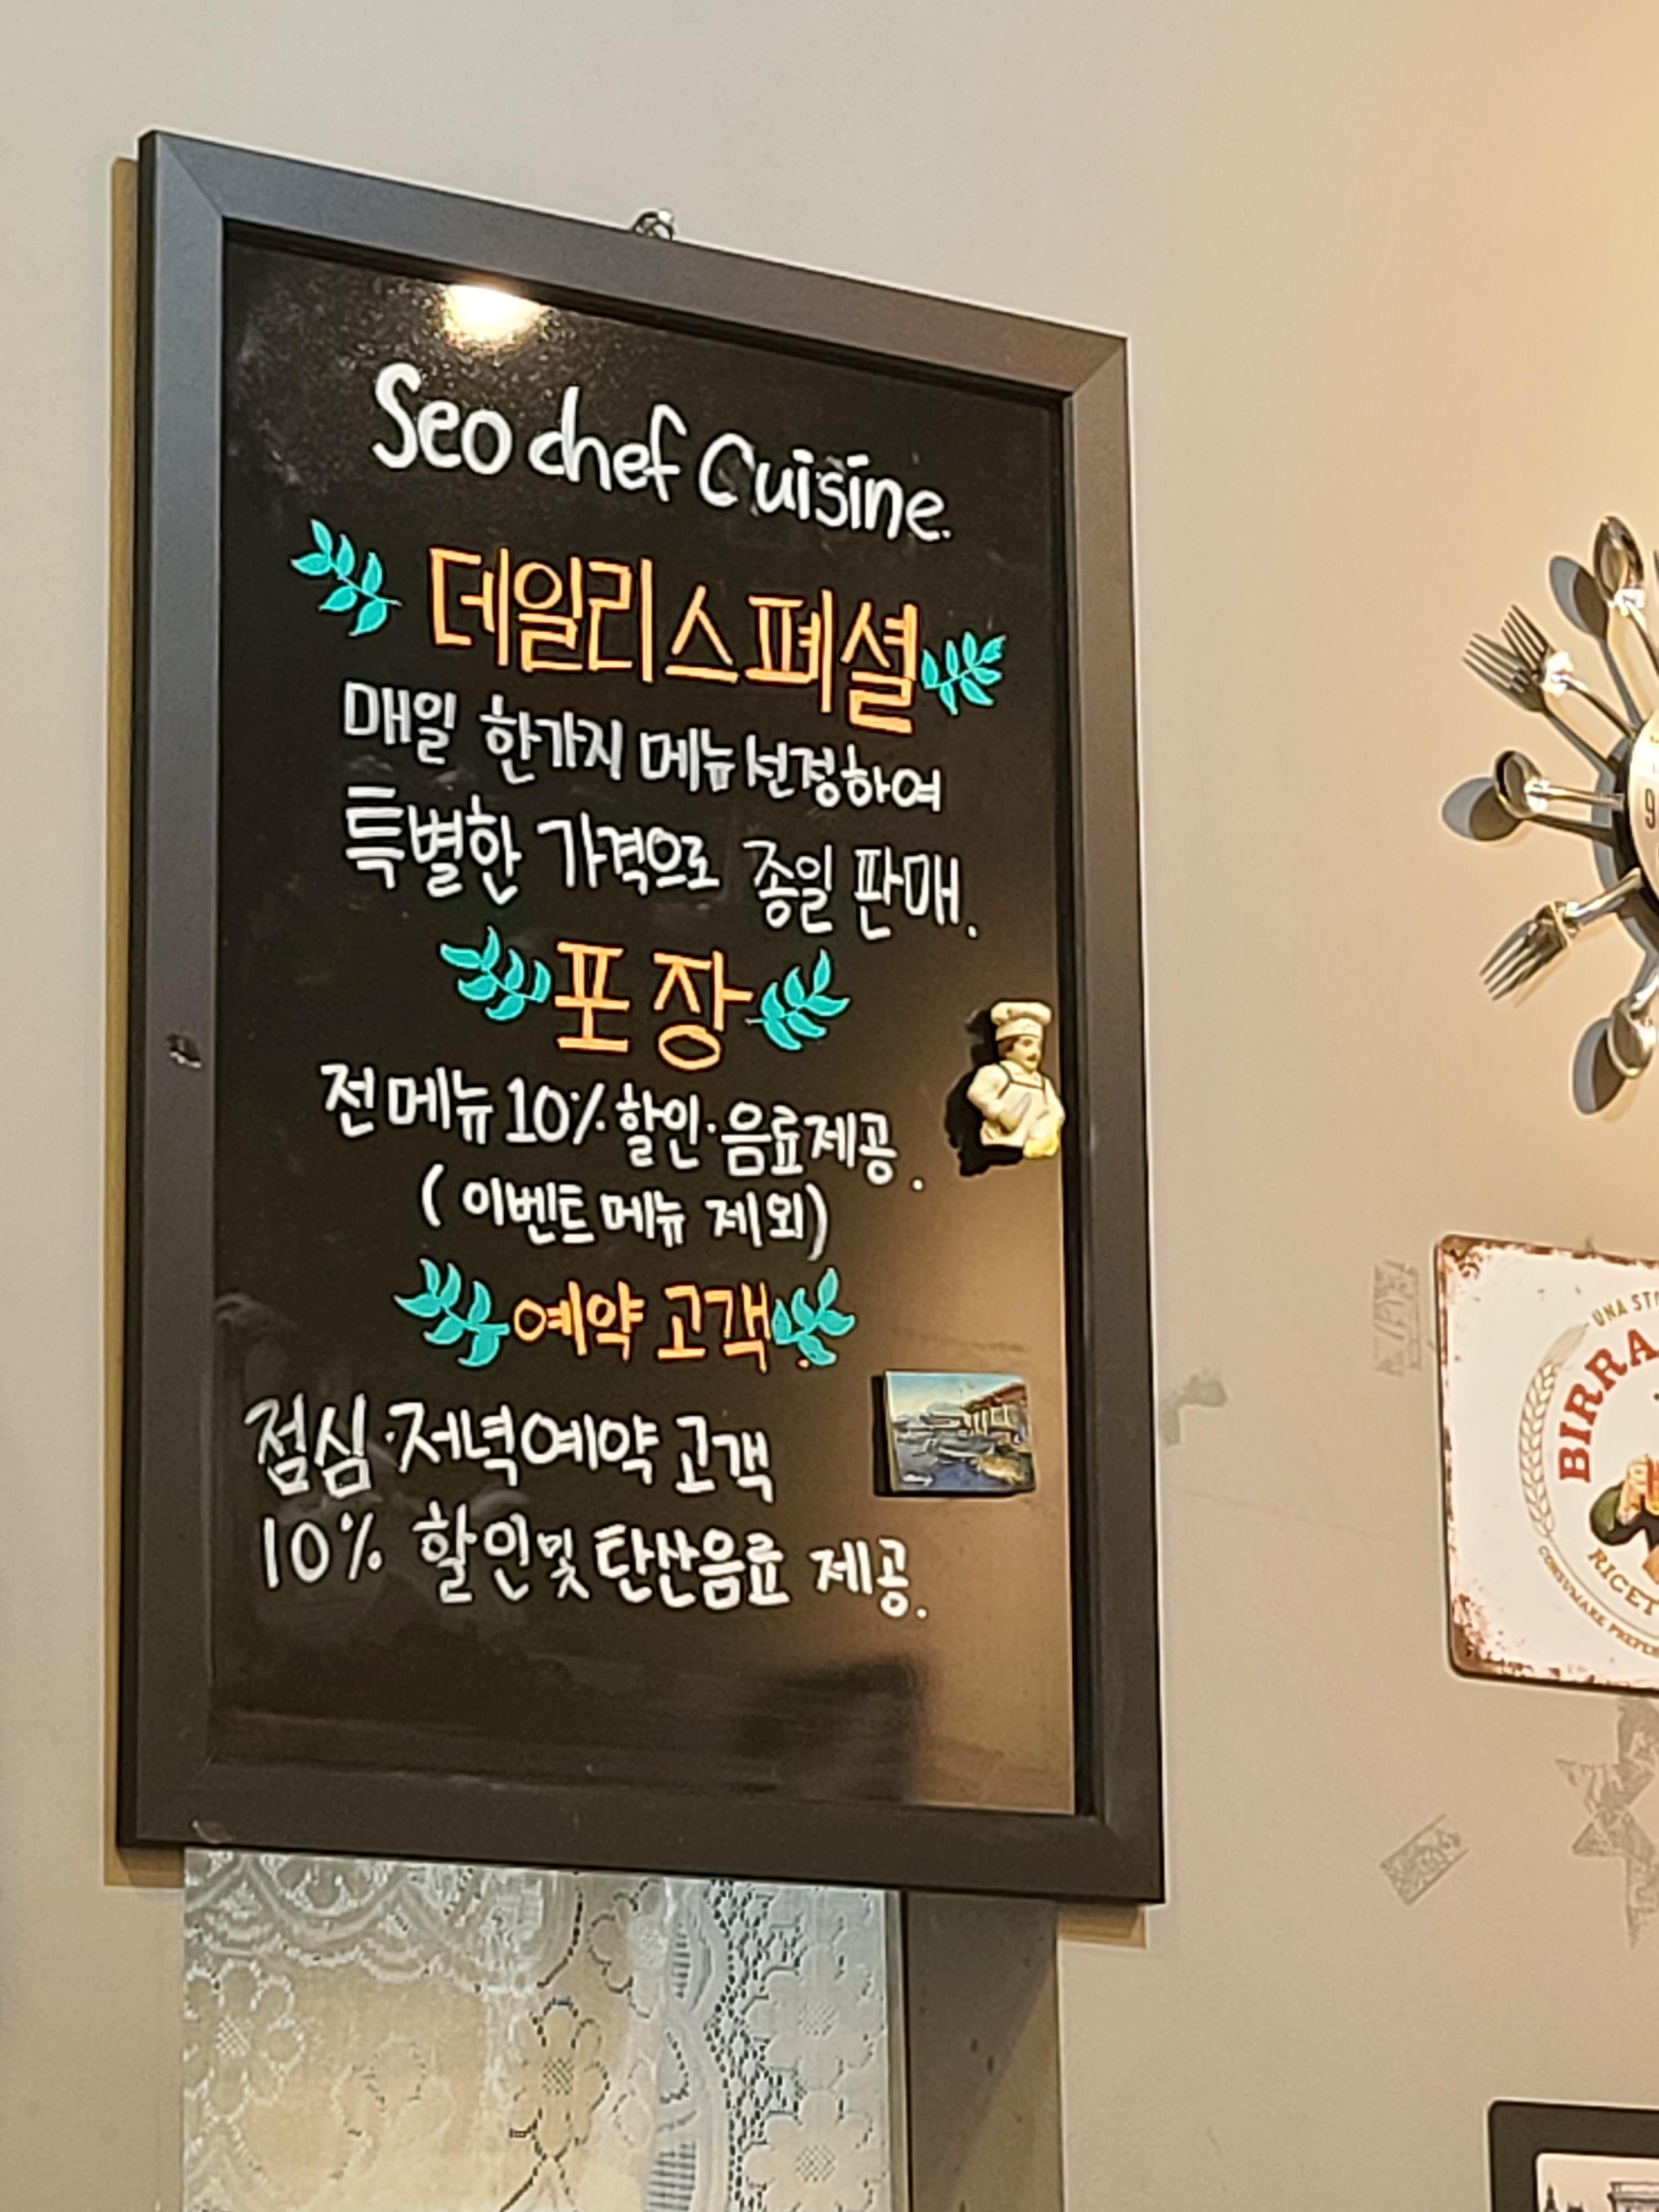 Seo chef Cuisine.
데일리스폐셜
매일 한가지 메뉴선정하여
특별한 가격으로 종일 판매.
포장
전메뉴 10% 할인·음료제공.
(이벤트메뉴 제외)
예약 고객.
점심·저녁예약 고객
10% 할인및 탄산음료 제공.
UNA
BIRRA
RICET
CONSUMARE